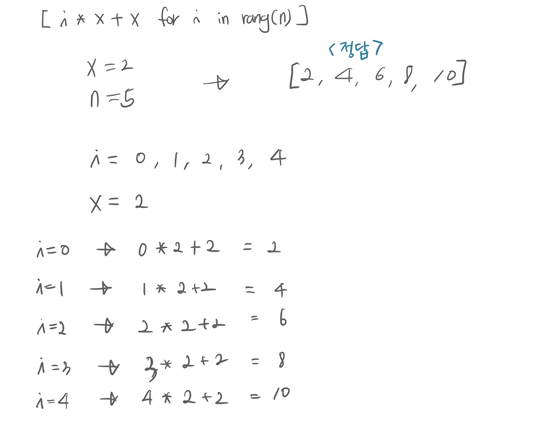 [ i * x + x for i in rang(n) ]
<정답>
x = 2 → [2, 4, 6, 8, 10]
n = 5
i = 0, 1, 2, 3, 4
x = 2
i=0 → 0 * 2 + 2 = 2
i=1 → 1 * 2 + 2 = 4
i=2 → 2 * 2 + 2 = 6
i=3 → 3 * 2 + 2 = 8
i=4 → 4 * 2 + 2 = 10